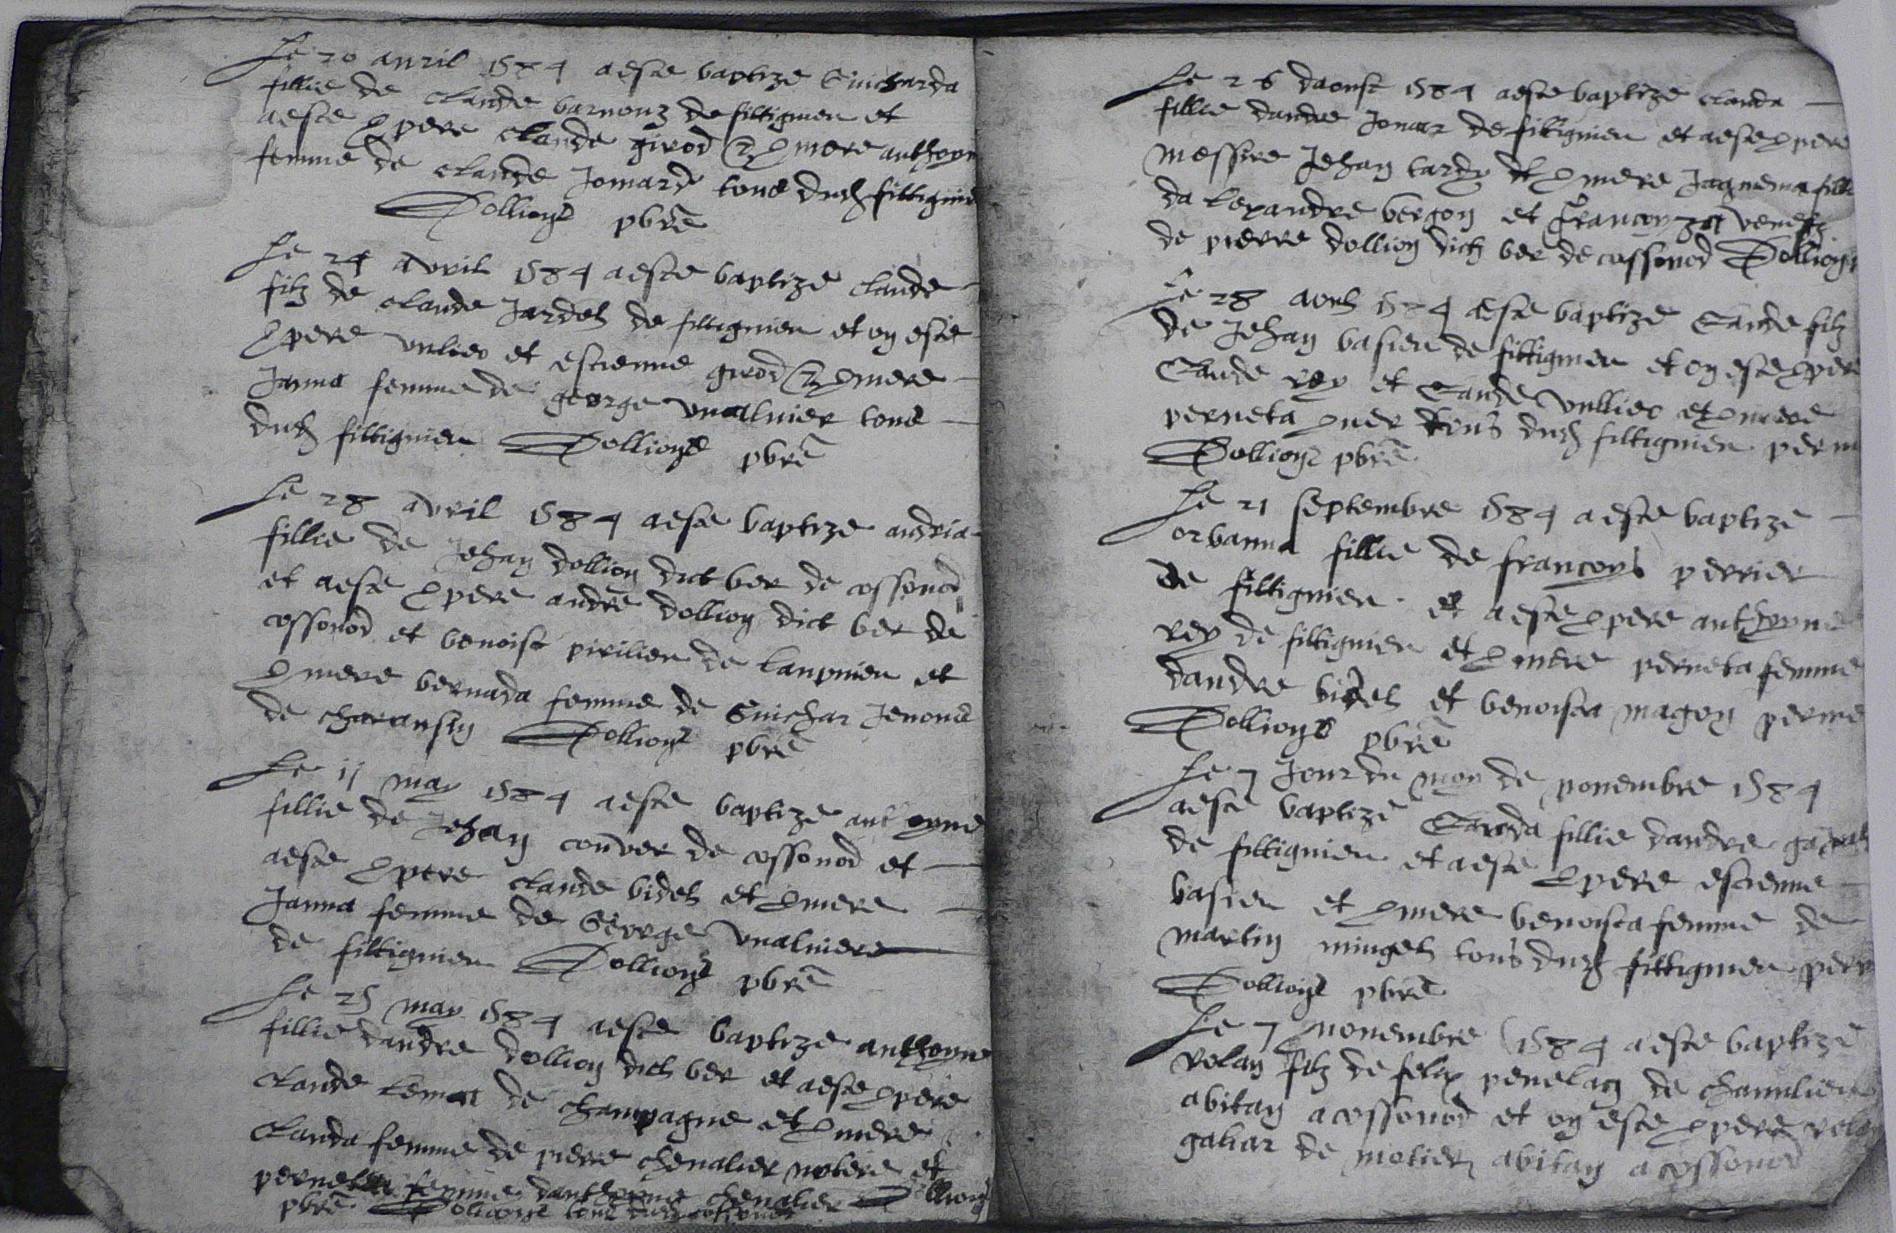 Le 20 apvril 1584 a este baptize Guicharda
fillie de Claude barnouz de filtignieu et
a este ꝯpere Claude girod & ꝯmere anthoyn
femme de Claude Jomard tous dudz filtignie
Dollionz pbre
Le 24 apvril 1584 a este baptize Claude
filz de Claude Jardeh de filtignieu et on este
ꝯpere vulliet et estienne girod & ꝯmere
Janna femme de george vualnier tous
dudz filtignieu Dollionz pbre
Le 28 apvril 1584 a este baptize andria
fillie de Jehan dollion dict ber de cossonod
et a este ꝯpere andre dollion dict ber de
cossonod et benoist pivilieu de laupnieu et
ꝯmere bernada femme de Guichar Jenoud
de charansin Dollionz pbre
Le 11 may 1584 a este baptize anthoyne
fillie de Jehan conver de cossonod et
a este ꝯpere claude bideh et ꝯmere
Janna femme de George vualniere
de filtignieu Dollionz pbre
Le 25 may 1584 a este baptize anthoyne
fillie dandre dollion dich ber et a este ꝯpere
claude de champagne et ꝯmere
Clauda femme de pierre chevalier notere et
pernetta femme danthoyne chevalier Dollion
pbre Dollionz tous dudz cossonod
Le 26 daoust 1584 a este baptize clauda
fillie dandre Jomar de filtignieu et a este ꝯpere
messire Jehan tardy et ꝯmere Jaquema fillie
dalexandre bergon et francoyza
de pierre dollion dich ber de cossonod Dollionz
Le 28 aoust 1584 a este baptize Claude filz
de Jehan basieu de filtignieu et on este ꝯpere
Claude rey et Claude vulliet et ꝯmere
perneta tous dudz filtignieu per m
Dollionz pbre
Le 21 septembre 1584 a este baptize
orbanna fillie de francoys perrier
de filtignieu et a este ꝯpere anthoyne
rey de filtignieu et ꝯmere perneta femme
dandre bideh et benoista magon per me
Dollionz pbre
Le 7 Jour du moy de novembre 1584
a este baptize Clauda fillie dandre
de filtignieu et a este ꝯpere estienne
basieu et ꝯmere benoista femme de
martin mingeh tous dudz filtignieu per
Dollionz pbre
Le 7 novembre 1584 a este baptize
rolan filz de felix penelan de chanulieu
abitan a cossonod et on este ꝯpere rolan
galiar de motier abitan a cossonod